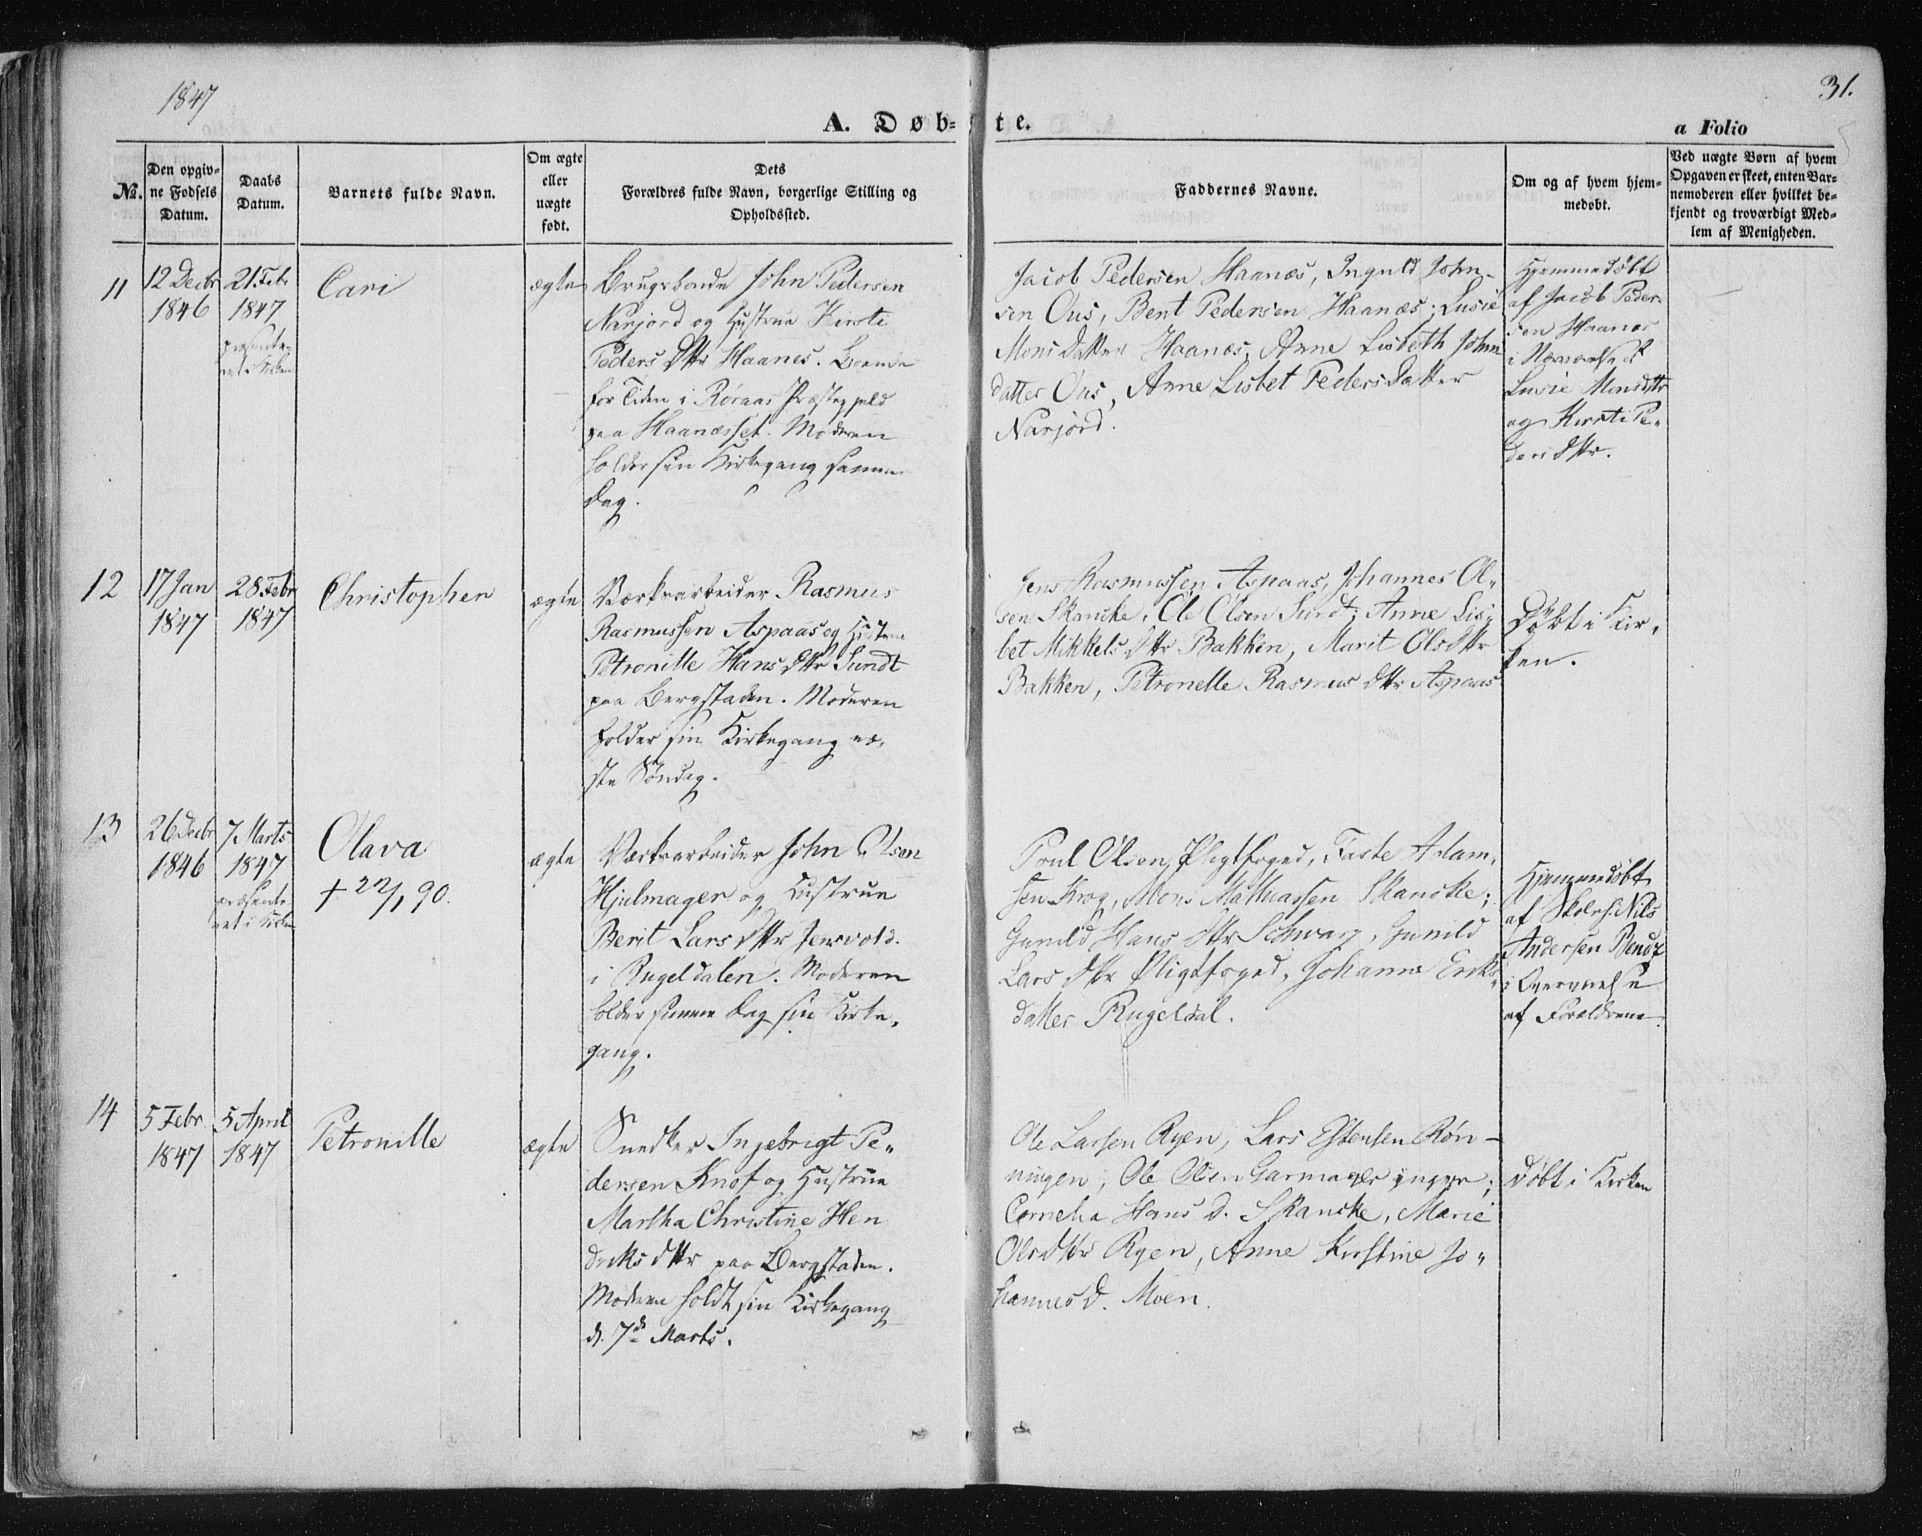 1847
31.
A. Døb-te.
a Folio
No.
Den opgiv-
ne Fødsels
Datum.
Daabs
Datum.
Barnets fulde Navn.
Om ægte
eller
uægte
født.
Dets
Forældres fulde Navn, borgerlige Stilling og
Opholdssted.
Faddernes Navne.
Om og af hvem hjem-
medøbt.
Ved uægte Børn af hvem
Opgaven er skeet, enten Bar-
nemoderen eller hvilket be-
kjendt og troværdigt Med-
lem af Menigheden.
11
12 Decbr
1846
21. Febr
1847
præsente-
ret i Kirken
Cari
ægte
Brugsbonde John Pedersen
Narjord og Hustrue Kirsti
Peders Dttr Haanes. Boende
for Tiden i Røraas Præstegjeld
paa Haanæsset. Moderen
holder sin Kirkegang samme
Dag.
Jacob Pedersen Haanæs, Ingvld John-
sen Ous, Bent Pedersen Haanæs; Lusie
Monsdatter Haanæs, Anne Lisbeth John
datter Ous, Anne Lisbet Peders Datter
Narjord.
Hjemmedøbt
af Jacob Peder-
sen Haanæs
i Nærværelse af
Lusie Monsdttr
og Kirsti Pe-
ders Dttr.
12
17 Jan
1847
28 Febr
1847
Christopher
ægte
Værkarbeider Rasmus
Rasmussen Aspaas og Hustrue
Petronille Hans Dttr Sundt
paa Bergstaden. Moderen
holder sin Kirkegang næ-
ste Søndag.
Jens Rasmussen Aspaas, Johannes Ol-
sen Skancke, Ole Olsen Sundt; Anne Lis-
bet Mikkels Dttr Bakken, Marit Olsdttr
Bakken, Petronelle Rasmus Dttr Aspaas
Døbt i Kir-
ken.
13
26 Decbr
1846
7 Marts
1847
præsente
ret i Kirken
Olava
+ 22/1 90.
ægte
Værkarbeider John Olsen
Hjulmager og Hustrue
Berit Lars Dttr Jensvold.
i Rugeldalen. Moderen
holder samme Dag sin Kirke-
gang.
Poul Olsen Pligtfoged, Faste Adam-
sen Krog, Mons Mathiassen Skancke;
Gunild Hans Dttr Schwarz, Gunild
Lars Dttr Pligtfoged, Johanna Eriks-
datter Rugeldal.
Hjemmedøbt
af Skoleh. Nils
Andersen Bendz
i Overværelse
af Forældrene.
14
5 Febr
1847
5 April
1847
Petronille
ægte
Snedker Ingebrigt Pe-
dersen Knof og Hustrue
Martha Christine Hen
driks Dttr paa Bergstaden.
Moderen holdt sin Kirkegang
d. 7de Marts.
Ole Larsen Ryen, Lars Estensen Røn-
ningen, Ole Olsen Garmager yngre;
Cornelia Hans D. Skancke, Marie
Olsdttr Ryen, Anne Kirstine Jo-
hannes D. Moen.
Døbt i Kirken